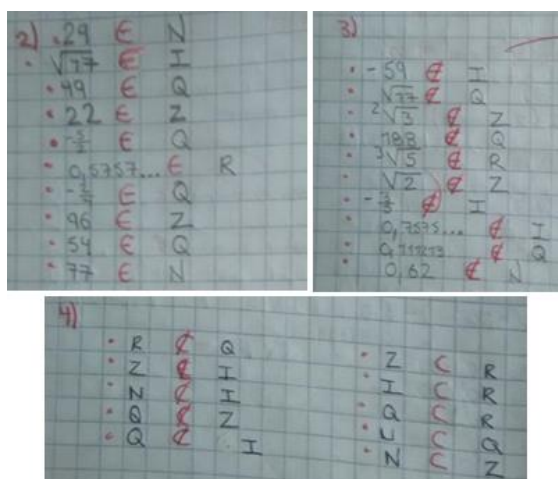 2) . 29 ∈ N
. √77 ∈ I
. 49 ∈ Q
. 22 ∈ Z
. ∈ Q
. 0,5757... ∈ R
. ∈ Q
. 96 ∈ Z
. 54 ∈ Q
. 77 ∈ N
3)
. -59 ∉ I
. √77 ∉ Q
. ²√3 ∉ Z
. ∉ Q
. ³√5 ∉ R
. √2 ∉ Z
. ∉ I
. 0,7575... ∉ I
. ∉ Q
. 0,62 ∉ N
4)
. R ⊄ Q
. Z ⊄ I
. N ⊄ I
. Q ⊄ Z
. Q ⊄ I
. Z ⊂ R
. I ⊂ R
. Q ⊂ R
. U ⊂ Q
. N ⊂ Z